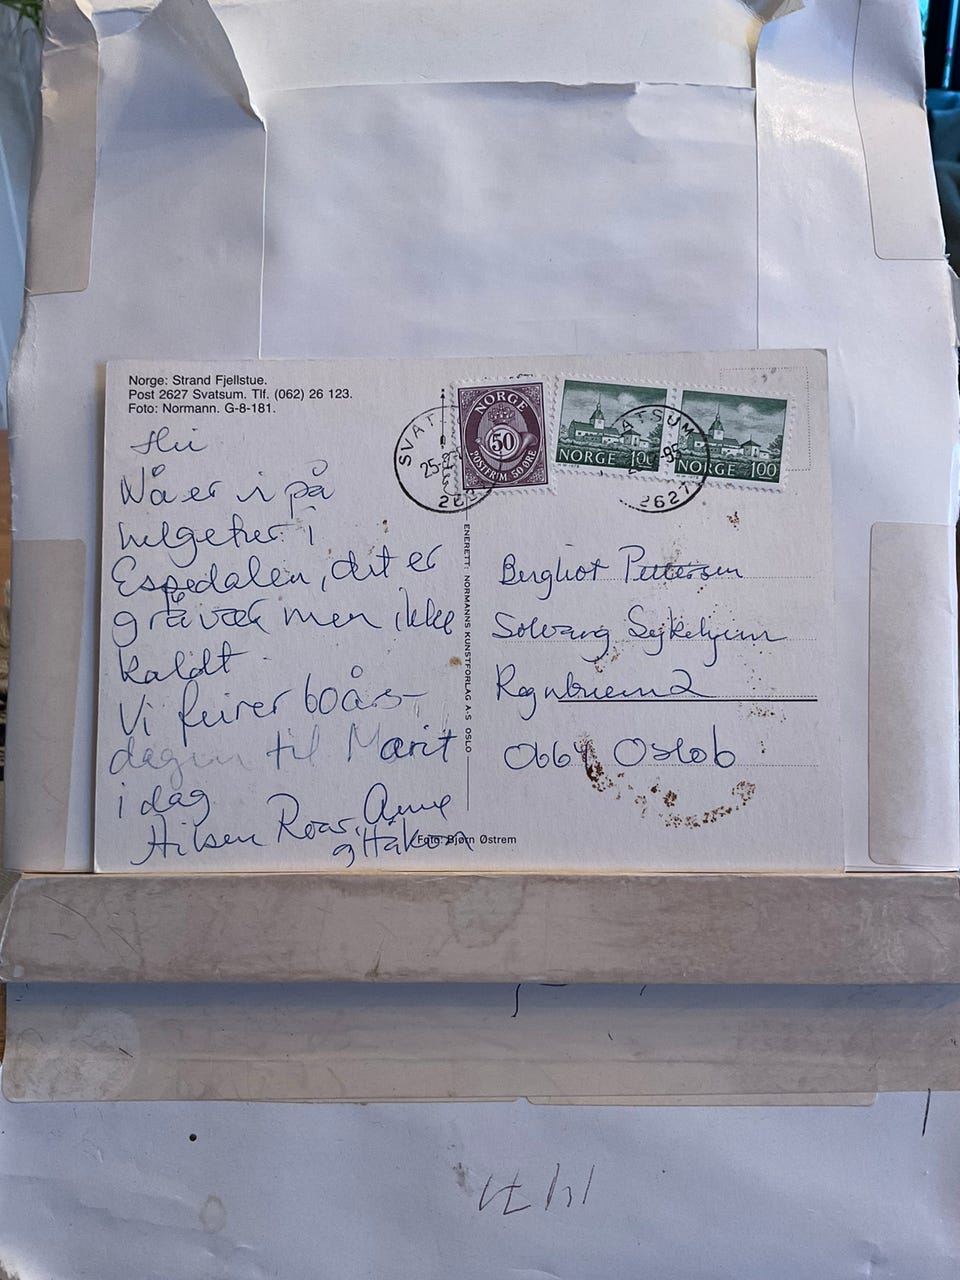 Norge: Strand Fjellstue.
Post 2627 Svatsum. Tlf. (062) 26 123.
Foto: Normann. G-8-181.
Hei
Nå er vi på
helgetur i
Espedalen, det er
gråvær men ikke
kaldt.
Vi feirer 60 års-
dagen til Marit
i dag
Hilsen Roar, Anne
og Håkon
Foto: Bjørn Østrem
ENERETT: NORMANNS KUNSTFORLAG A-S OSLO
SVAT
25-
NORGE
50
POSTFRIM 50 ØRE
NORGE 100
NORGE 100
ATSUM
2627
Bergliot Pettersen
Solvang Sykehjem
Regnbuen 2
0664 Oslo 6